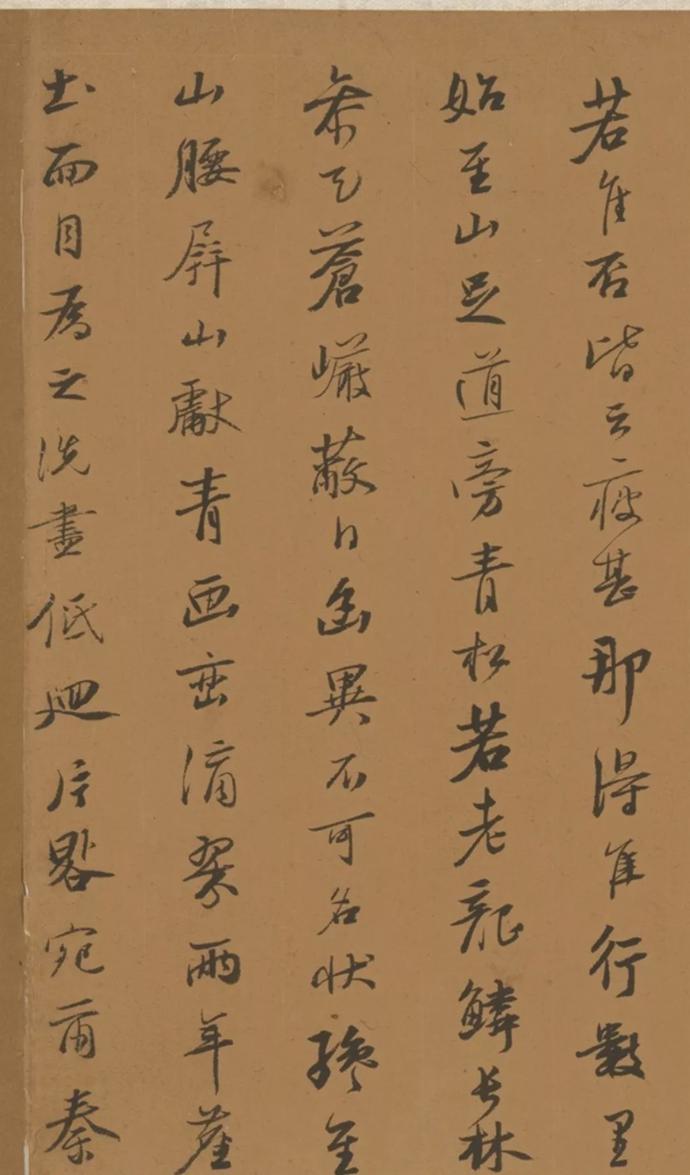 若隹否皆云疲甚那得隹行數里
始至山足道旁青松若老龍鱗長林
參天蒼巖蔽日幽異不可名狀纔至
山腰屏山獻青画峦滴翠兩年塵
土面目為之洗盡低迴片晷宛爾秦